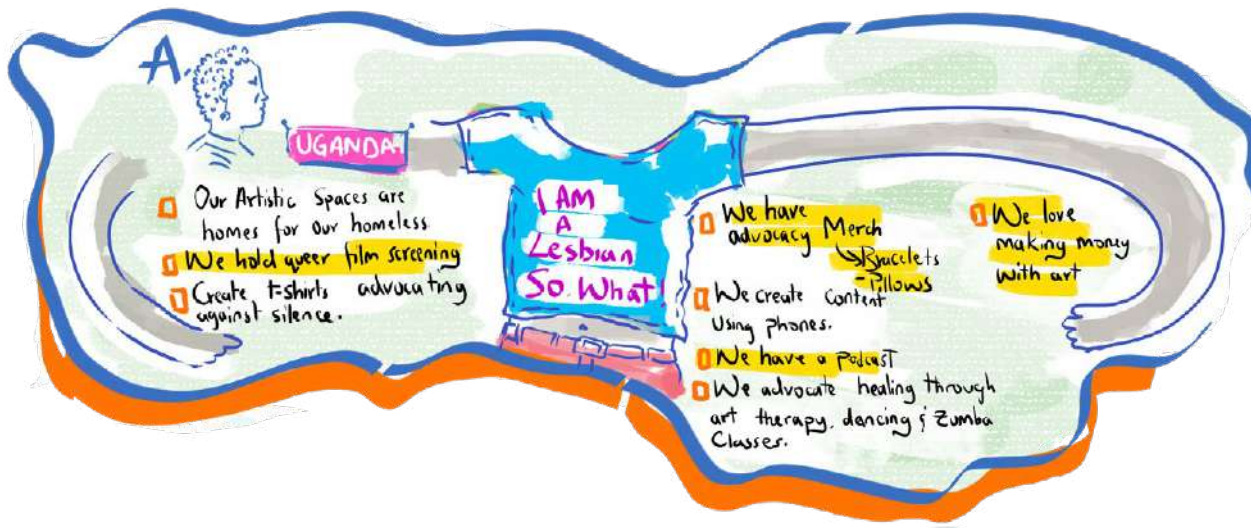 A.
UGANDA
Our Artistic Spaces are
homes for our homeless
We hold queer film screening
Create t-shirts advocating
against silence.
I AM
A
Lesbian
So. What!
We have
advocacy Merch
Bracelets
- Pillows
We create content
Using phones.
We have a podcast
We advocate healing through
art therapy, dancing & Zumba
Classes.
We love
making money
with art